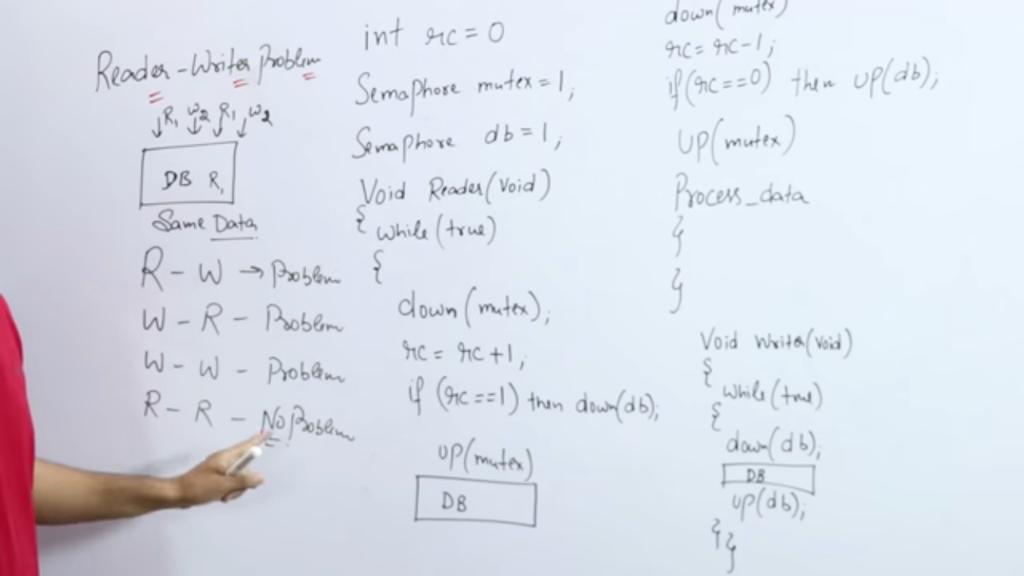 Reader-Writer Problem
R1 W2 R1 W2
DB R1
Same Data
R - W → Problem
W - R - Problem
W - W - Problem
R - R - No Problem
int rc = 0
Semaphore mutex = 1;
Semaphore db = 1;
Void Reader(Void)
{ while(true)
{
down(mutex);
rc = rc + 1;
if (rc==1) then down(db);
UP(mutex)
DB
down(mutex)
rc = rc-1;
if(rc==0) then UP(db);
UP(mutex)
Process_data
}
}
Void Writer(Void)
{
while(true)
{
down(db);
DB
up(db);
}
}